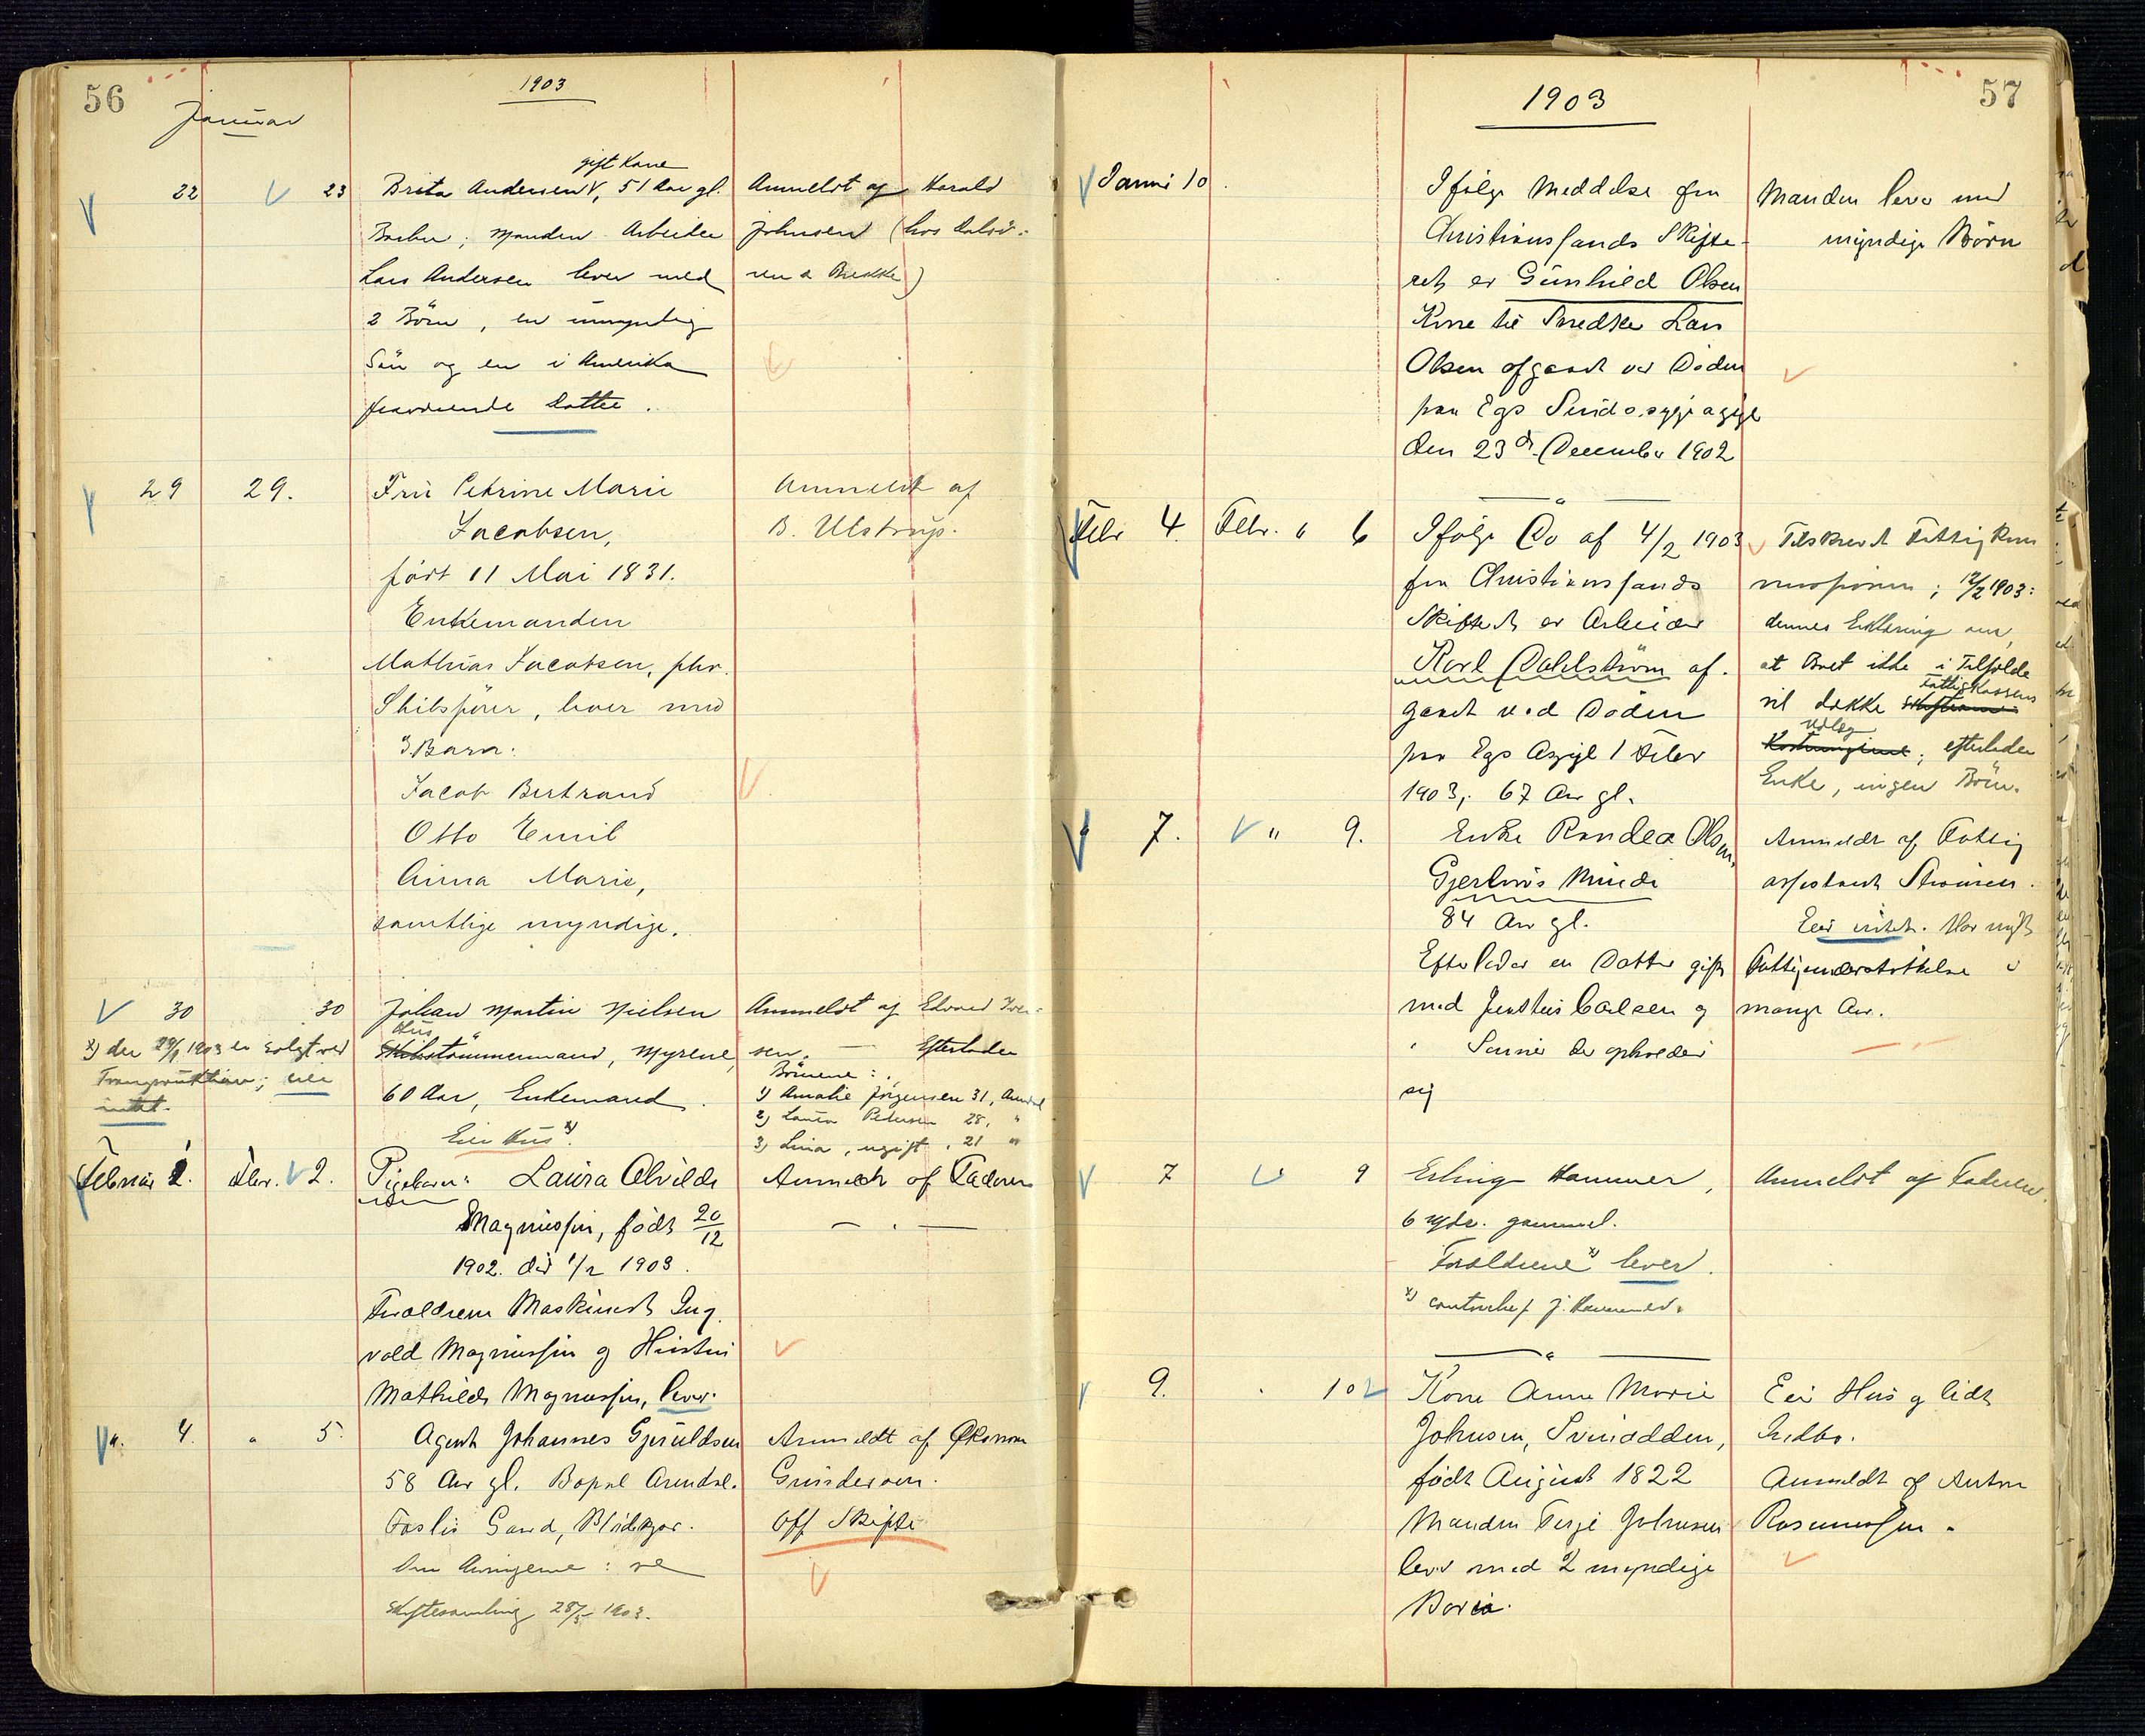 56
1903
Januar
22 23 Brita Andersen, gift Kone, 51 Aar gl. Anmeldt af Harald
Barbu; Manden Arbeider Johnsen (hos
Lars Andersen lever med
2 Börn, en umyndig
Sön og en i Amerika
fraværende Datter.
29 29. Fru Petrine Marie Anmeldt af
Jacobsen, B. Ulstrup.
født 11 Mai 1831.
Enkemanden
Mathias Jacobsen, fhv.
Skibsfører, lever med
3 Barn:
Jacob Bertrand
Otto Emil
Anna Marie,
samtlige myndige.
30 30 Johan Martin Nielsen Anmeldt af Edvard Iver-
Hus
x) den 29/1 1903 er solgt ved Skibstömmermand, Myrene, sen. — Efterlader
Tvangsauktion; eier Börnene:
intet. 60 Aar, Enkemand. 1) Amalie Jørgensen 31, Arendal
2) Laura Pedersen 28, "
Eier Hus x) 3) Lina, ugift, 21 "
Februar 2. Febr. 2. Pigebarn: Laura Alvilde Anmeldt af Faderen
Magnussen, födt 20/12
1902. död 1/2 1903.
Forældrene Maskinist Ing-
vald Magnussen og
Mathilde Magnussen, lever.
" 4. " 5. Agent Johannes Gjeruldsen Anmeldt af Økonom
58 Aar gl. Bopæl Arendal. Gundersen.
Gaard, Off Skifte
Om Arvingerne: se
Skiftesamling 28/3 1903.
57
1903
Januar 10. Ifølge Meddelse fra Manden lever med
Christianssands Skifte- myndige Börn
ret er Gunhild Olsen
Kone til Snedker Lars
Olsen afgaaet ved Döden
paa Egs Sindssygeasyl
den 23de December 1902
Febr 4. Febr. " 6 Ifølge Do af 4/2 1903 Tilskrevet Fattigkom
fra Christianssands missionen; 12/2 1903:
Skifteret er Arbeider dennes Erklæring om,
Karl Dahlström af- at Boet ikke i Tilfælde
Fattigkassens
gaaet ved Döden vil dække
Udlæg
paa Egs Asyl 1 Febr ; efterlader
1903, 67 Aar gl. Enke, ingen Börn.
7. " 9. Enke Randea Olsen, Anmeldt af Fattig
Gjertruds Minde assistent
84 Aar gl. Eier intet. Har nydt
Efterlader en Datter gift Fattigunderstöttelse i
med Carlsen og mange Aar.
Sönner der opholder
sig
7 9 Erling Hammer, Anmeldt af Faderen.
6 Mdr. gammel.
Forældrene x) lever.
x) J. Hammer.
9. " 10 Kone Anne Marie Eier Hus og lidt
Johnsen, Svinodden, Indbo.
født August 1822 Anmeldt af Anton
Manden Terje Johnsen Rasmussen.
lever med 2 myndige
Börn.